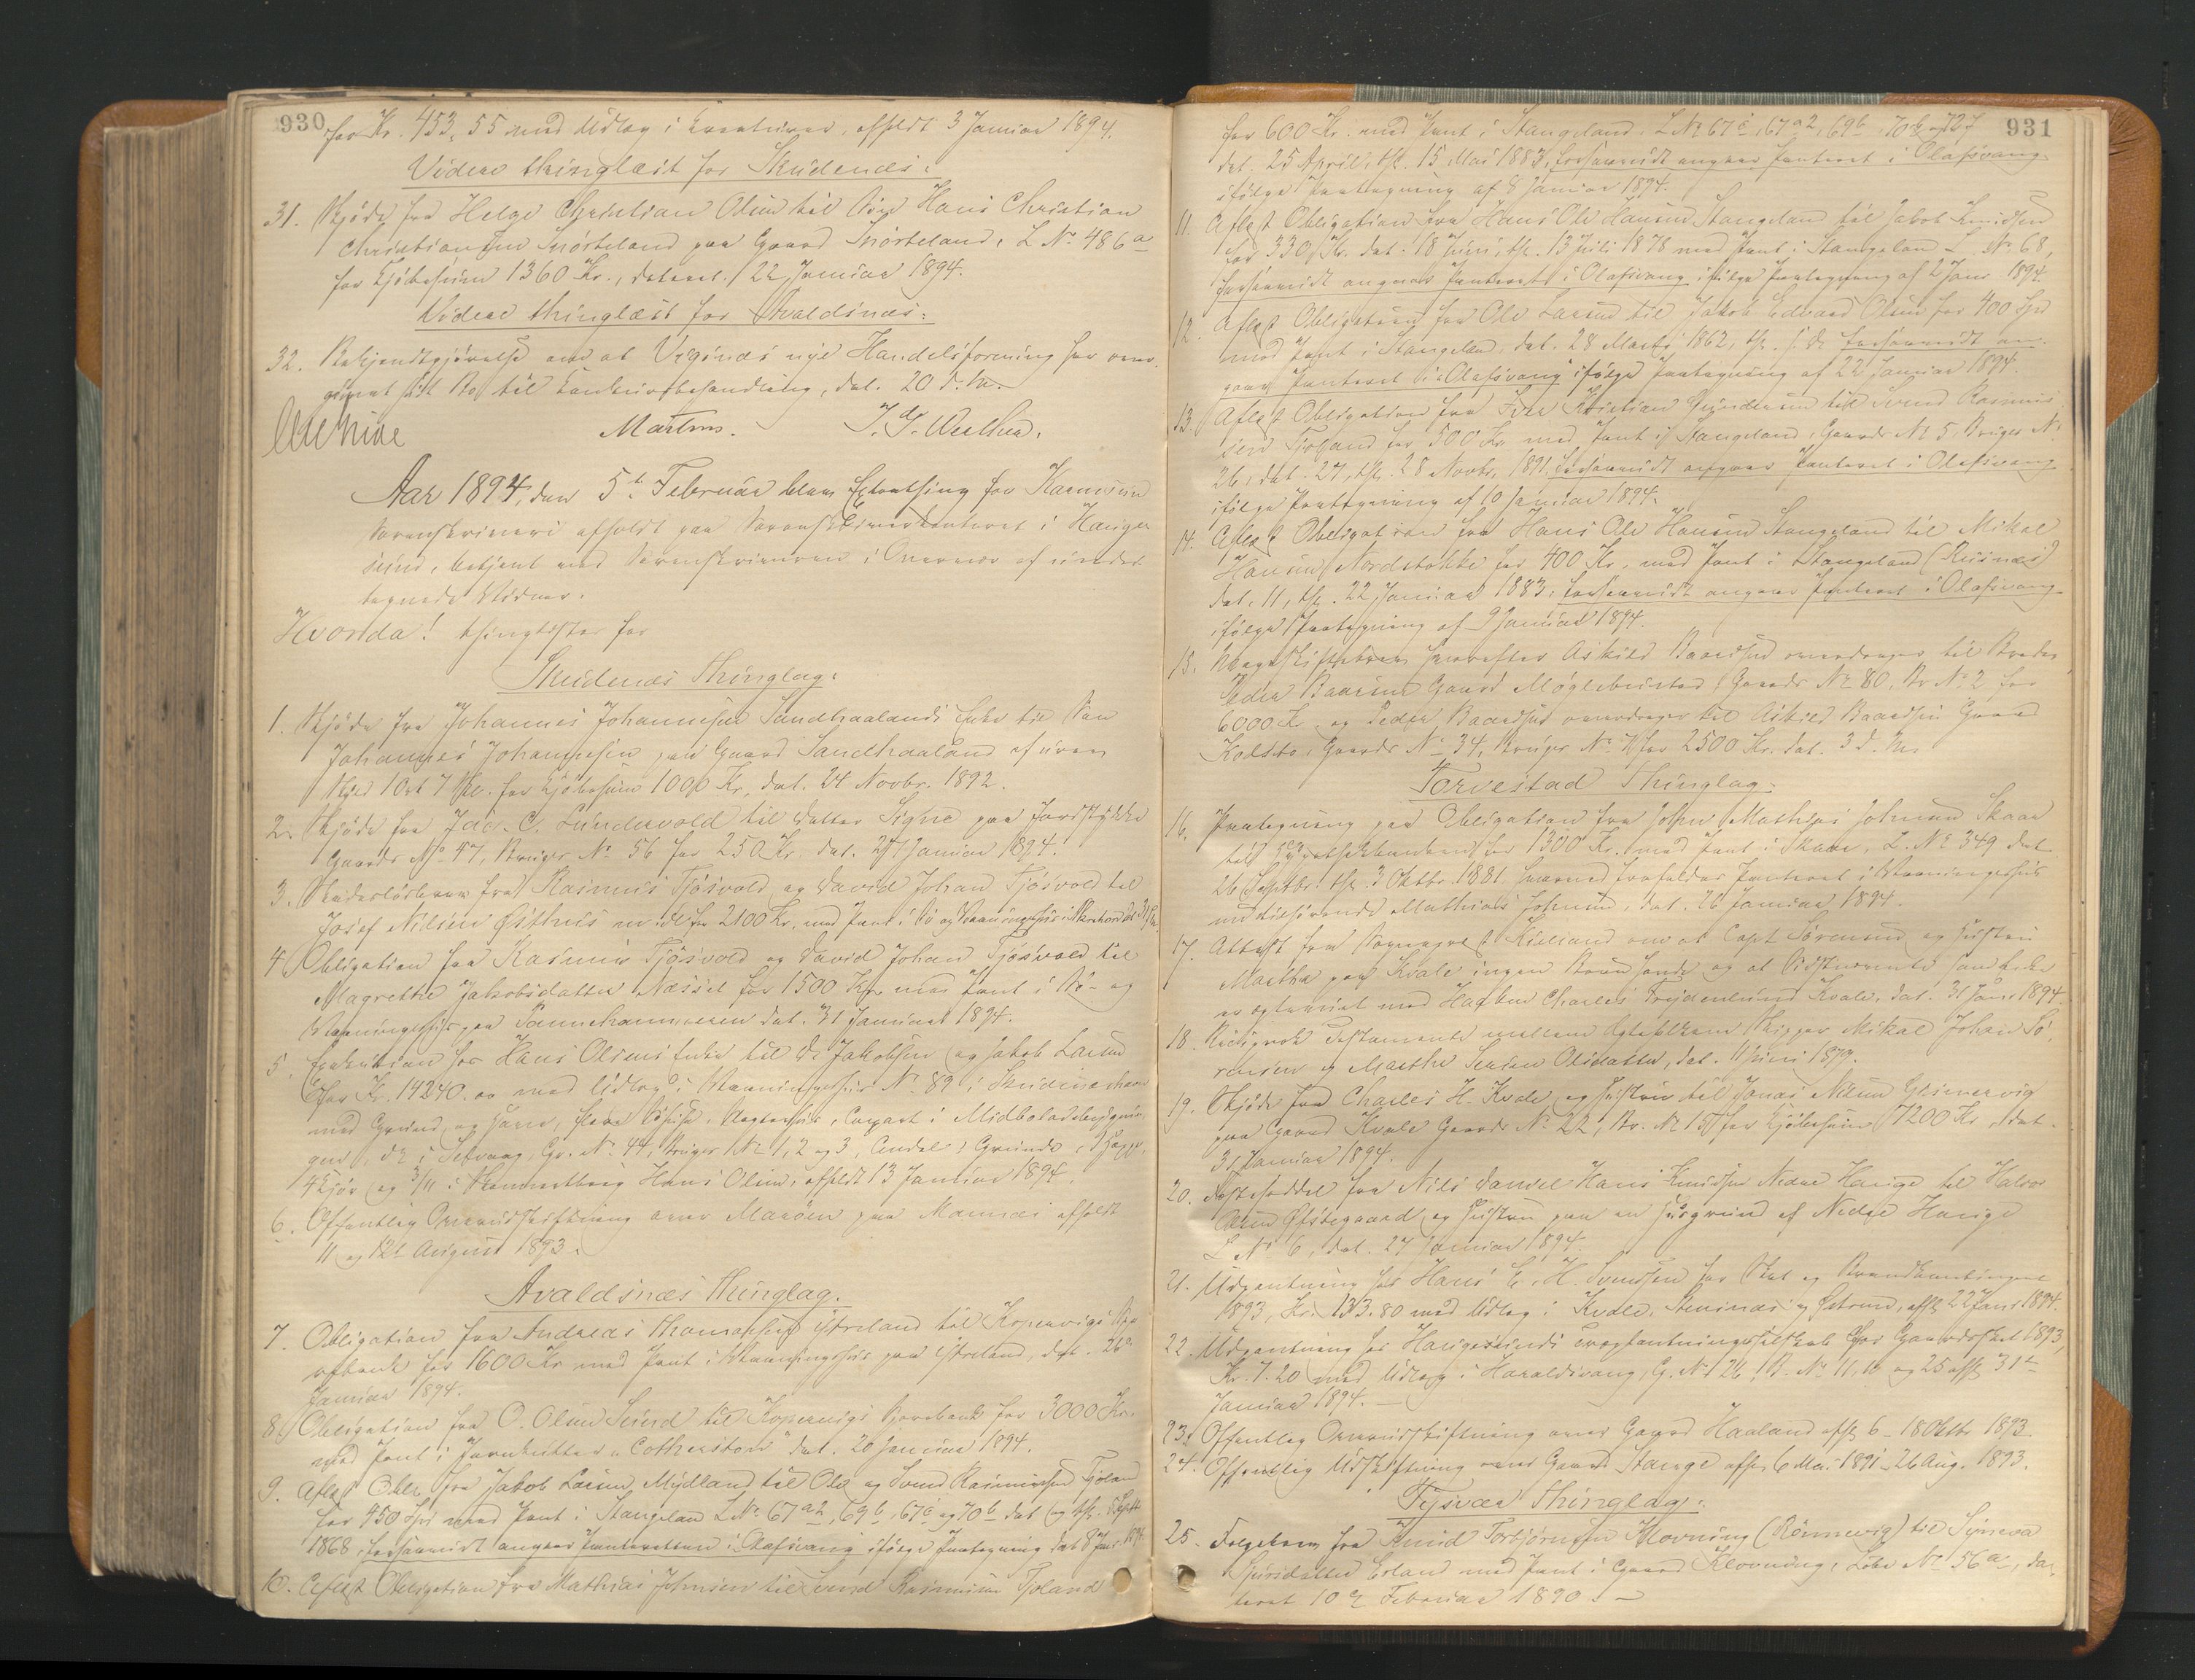 930
for Kr. 453,55 med Udlæg i Creaturer, afholdt 3 Januar 1894.
Videre thinglæst for Skudenæs:
31. Skjøde fra Helge Christian Olsen til Hans Christian
Christiansen Snørteland paa Gaard Snørteland, L No 486a
for Kjøbesum 1360 Kr., dateret 22 Januar 1894.
Videre thinglæst for Avaldsnæs:
32. Bekjendtgjørelse om at Vigsnæs nye Handelsforening har over-
givet sit Bo til Konkursbehandling, dat. 20 d. M.
Martens.
Aar 1894, den 5te Februar blev Extrathing for Karmsund
Sorenskriveri afholdt paa Sorenskriverkontoret i Hauge-
sund, betjent med Sorenskriveren i Overvær af under-
tegnede Vidner.
Hvorda! thinglystes for
Skudenæs Thinglag:
1. Skjøde fra Johannes Johannesen Sandhaalands Enke til Søn
Johannes Johannesen paa Gaard Sandhaaland af
Skyld 1 Ort 7 Sk. for Kjøbesum 1000 Kr., dat. 24 Novbr. 1892.
2. Skjøde fra Jac. C. Lundevold til Datter Signe paa Jordstykke
Gaards No 47, Bruges No 56 for 250 Kr. dat. 27 Januar 1894.
3. Skadesløsbrev fra Rasmus Tjøsvold og David Johan Tjøsvold til
Josef Nilsen Østhus m. fl. for 2100 Kr. med Pant i
4. Obligation fra Rasmus Tjøsvold og David Johan Tjøsvold til
Magrethe Jakobsdatter Næsset for 1500 Kr. med Pant i Sø- og
Vaaningshus paa dat. 31 Januar 1894.
5. Exekution hos Hans Olsens Enke til Jakobsen og Jakob Larsen
for Kr. 14240.00 med Udlæg i Vaaningshus No 89 i Skudeneshavn
med Grund og Have, Søhus, Part i
i Gr. No 44, Bruges No 1, 2 og 3, Andel i Grund
og 3/11 i Hans Olsen, afholdt 13 Januar 1894.
6. Offentlig Omudskiftning over Marøen paa Mannæs afholdt
11 og 12t August 1893.
Avaldsnæs Thinglag.
7. Obligation fra Andreas Thomassen Ytreland til Kopervigs Spa-
rebank for 1600 Kr. med Pant i Vaaningshus paa Ytreland, dat. 26de
Januar 1894.
8. Obligation fra O. Olsen Sund til Kopervigs Sparebank for 3000 Kr.
med Pant i Jernkutter "Cotherstone" dat. 20 Januar 1894.
9. Aflæst Obl. fra Jakob Larsen Mydland til Ole og Svend Rasmussen Tjoland
for 450 Spd med Pant i Stangeland L No 67a2, 69b, 67c og 70b dat. og thl. Septbr
1868, forsaavidt angaar Panteretten i Olafsvang ifølge Paategning dat. 8 Jan. 1894.
10. Aflæst Obligation fra Mathias Johnsen til Svend Rasmussen Tjoland
931
for 600 Kr. med Pant i Stangeland L No 67c, 67a2, 69b, 70b og
dat. 25 April, thl. 15 Mai 1883, forsaavidt angaar Panteret i Olafsvang
ifølge Paategning af 8 Januar 1894.
11. Aflæst Obligation fra Hans Ole Hansen Stangeland til Jakob Knudsen
for 330 Kr. dat. 18 Juni, thl. 13 Juli 1878 med Pant i Stangeland L No 68,
forsaavidt angaar Panteret i Olafsvang ifølge Paategning af 2 Jan. 1894.
12. Aflæst Obligation fra Ole Larsen til Jakob Edvard Olsen for 400 Spd
med Pant i Stangeland, dat. 28 Marts 1862, thl. s. D. forsaavidt an-
gaar Panteret i Olafsvang ifølge Paategning af 22 Januar 1894.
13. Aflæst Obligation fra Iver Kristian Gundersen til Svend Rasmus-
sen Tjoland for 500 Kr. med Pant i Stangeland, Gaards No 5, Bruges No
26, dat. 27, thl. 28 Novbr. 1891, forsaavidt angaar Panteret i Olafsvang
ifølge Paategning af 10 Januar 1894.
14. Aflæst Obligation fra Hans Ole Hansen Stangeland til Mikal
Hansen Nordstokke for 400 Kr. med Pant i Stangeland (Risnæs)
dat. 11, thl. 22 Januar 1883, forsaavidt angaar Panteret i Olafsvang
ifølge Paategning af 9 Januar 1894.
15. Mageskiftebrev hvorefter Askild Baardsen overdrager til Broder
Peder Baardsen Gaard Møglebusted, Gaards No 80, Br. No 2 for
6000 Kr. og Peder Baardsen overdrager til Askild Baardsen Gaard
Kolstø, Gaards No 34, Bruges No 7 for 2500 Kr. dat. 3 d. M.
Torvestad Thinglag:
16. Paategning paa Obligation fra John Mathias Johnsen Skaar
til Hypothekbanken for 1300 Kr. med Pant i Skaar, L. No 349 dat.
26 Septbr. thl. 3 Oktbr. 1881 hvorved frafaldes Panteret i Vaaningshus
tilhørende Mathias Johnsen, dat. 26 Januar 1894.
17. Attest fra Sognepræst Kielland om at Capt Sørensen og Hustru
Martha paa Kvale ingen Børn havde og at Sidstnævnte som Enke
er egteviet med Hagbar Charles Frydenlund Kvale, dat. 31 Jan. 1894.
18. Testamente mellem Ægtefolkene Skipper Mikal Johan Sø-
rensen og Marthe Serine Olsdatter, dat. 11 Juni 1879.
19. Skjøde fra Charles H. Kvale og Hustru til Jonas Nilsen Grinnervig
paa Gaard Kvale Gaards No 22, Br. No 15 for Kjøbesum 7200 Kr., dat.
31 Januar 1894.
20. Fæsteseddel fra Nils Danvel Hans Knudsen Nedre Hauge til Halvor
Olsen Østegaard og Hustru paa en Husgrund af Nedre Hauge
L No 6, dat. 27 Januar 1894.
21. Udpantning hos Hans E. H. Svendsen for Skat og Brandkontingent
1893, Kr. 133.80 med Udlæg i Kvale, Steensnæs og Høstrand, afh. 22 Jan. 1894.
22. Udpantning hos Haugesunds Træplantningsselskab for Gaardsskat 1893,
Kr. 7.20 med Udlæg i Haraldsvang, G. No 26, B. No 11, 16 og 25 afh. 31te
Januar 1894. —
23. Offentlig Omudskiftning over Gaard Haaland afh. 6 - 18 Oktbr. 1893.
24. Offentlig Udskiftning over Gaard Stange afh. 6 Mai 1891 - 26 Aug. 1893.
Tysvær Thinglag:
25. Følgebrev fra Knud Torbjørnsen Klovning (Rønnevig) til Syneva
Sjursdatter Erland med Pant i Gaard Klovning, Løbe No 56a, da-
teret 10de Februar 1890. —